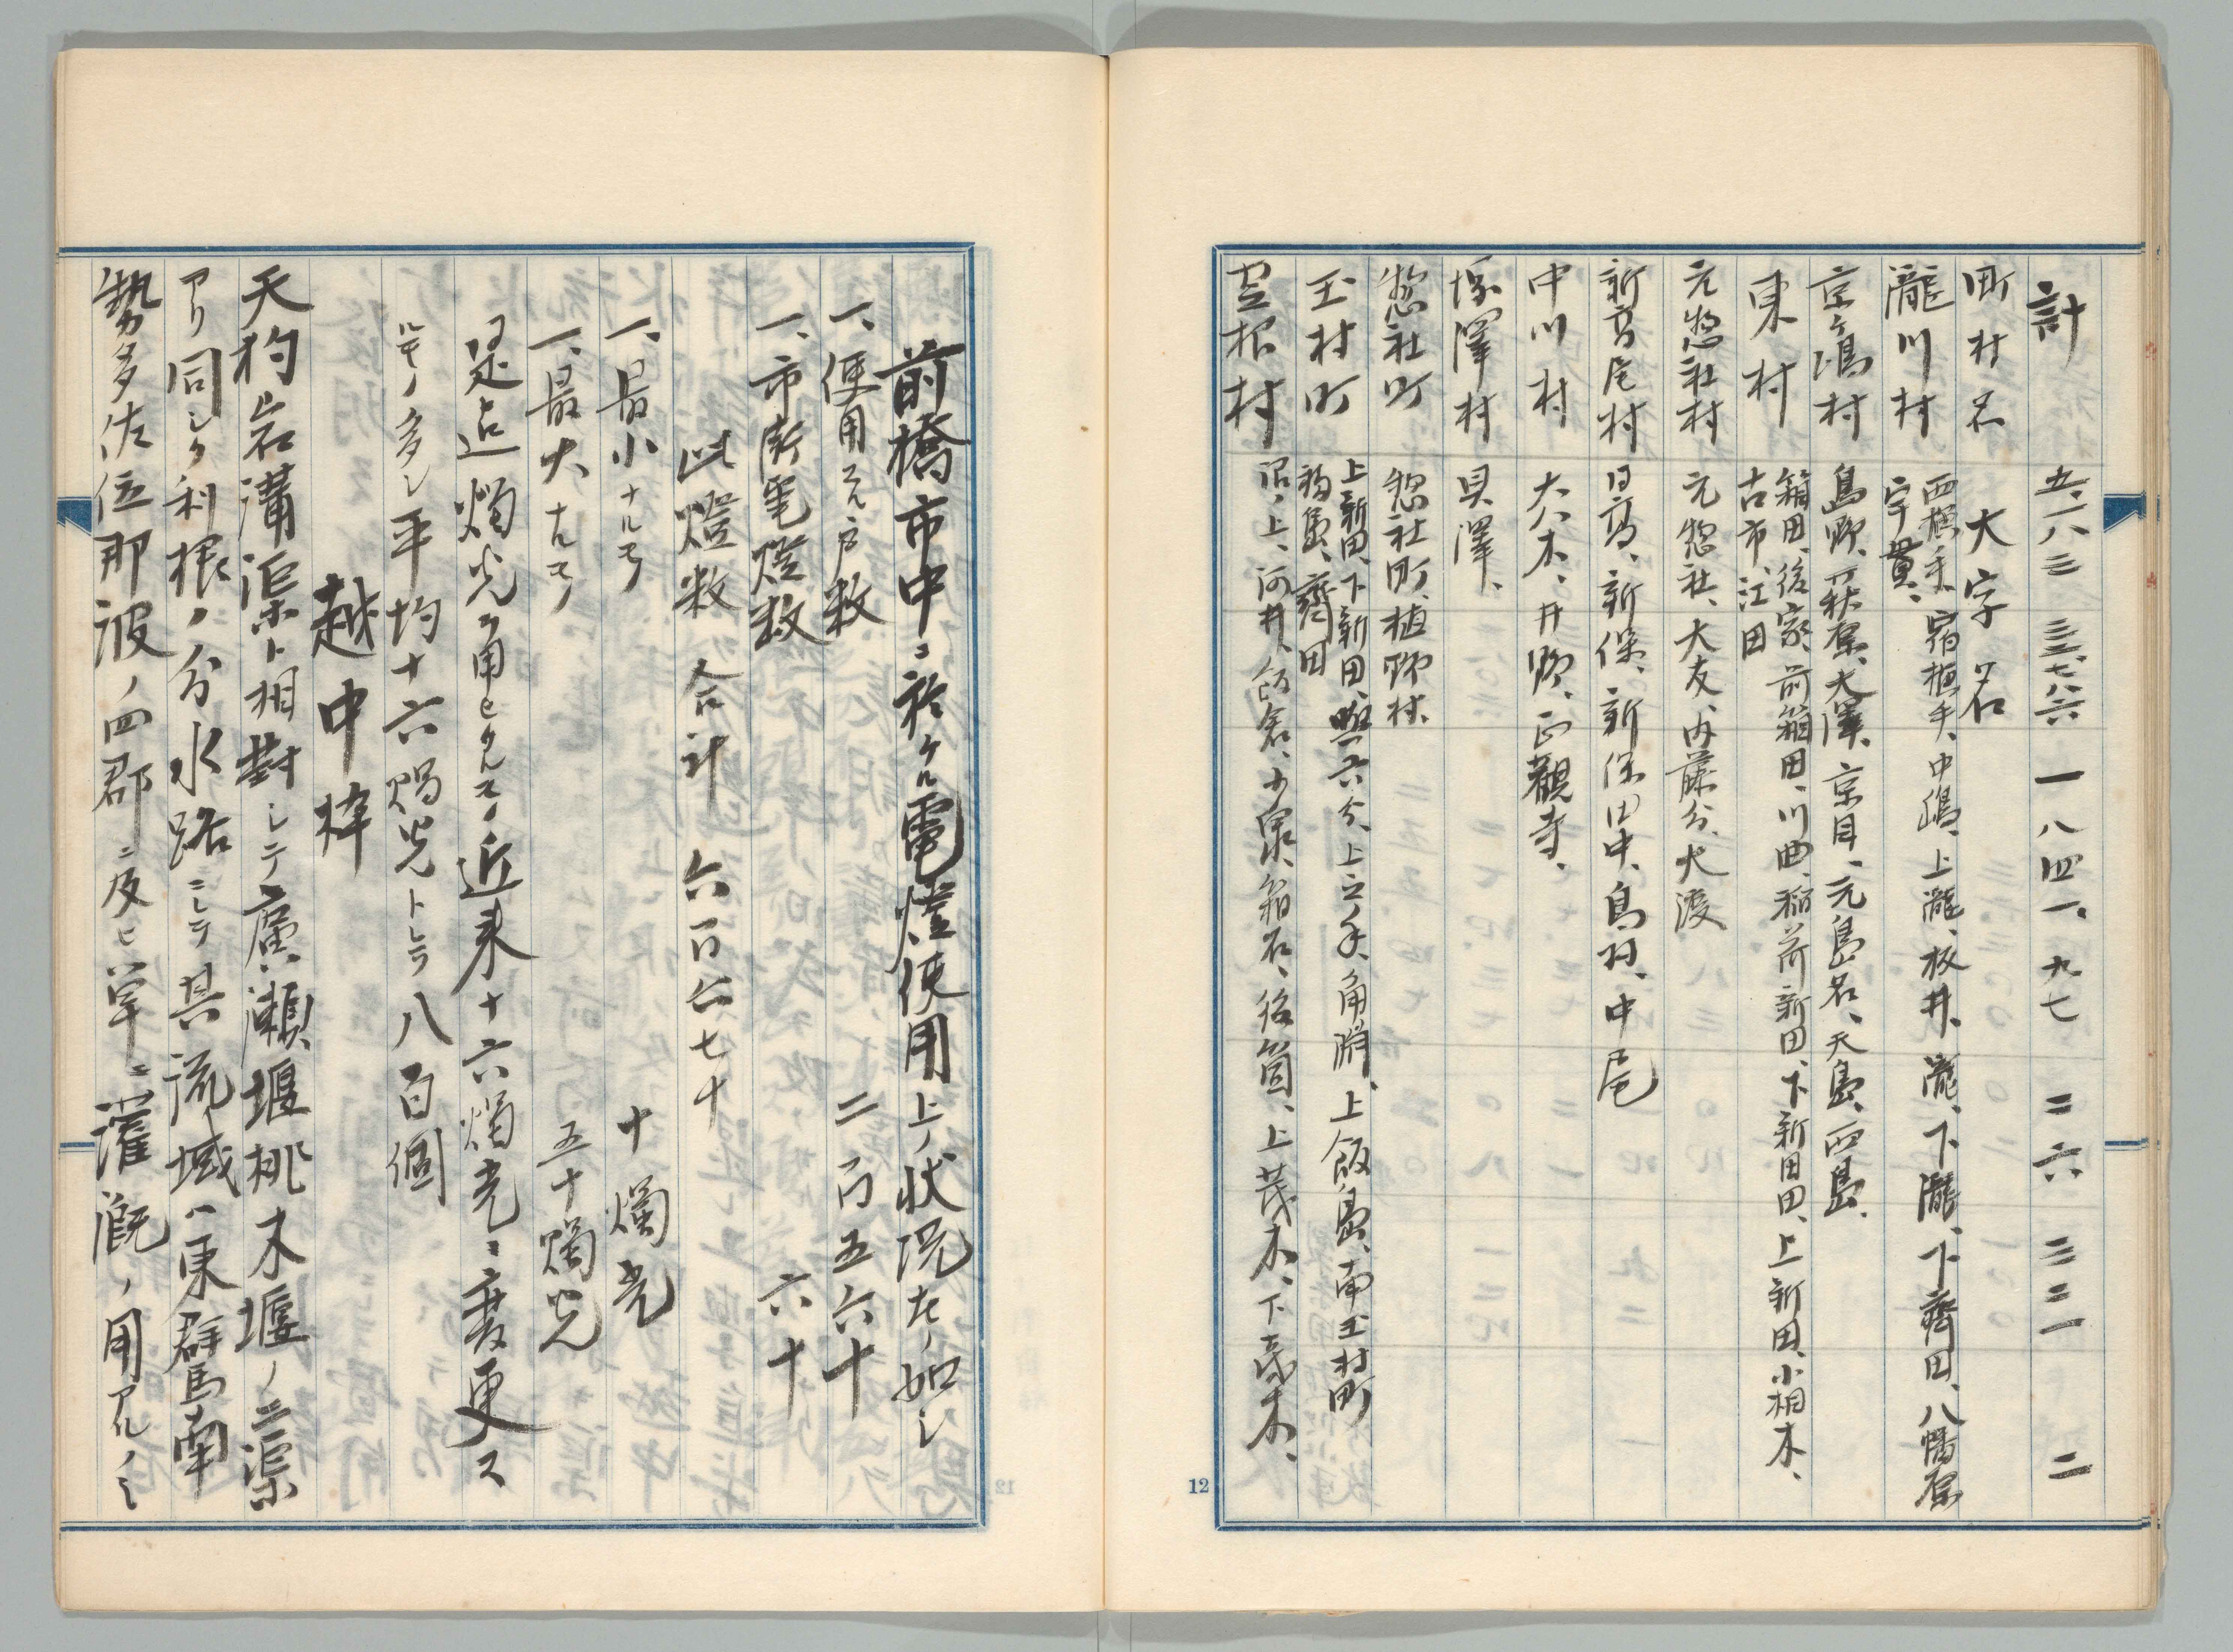 計 五一八三 三三七八六 一八四一、九七 二六 三二一 二
町村名 大字名
瀧川村 西横手、宿横手、中嶋、上瀧、板井、瀧、下瀧、下齊田、八幡原
宇貫、
京ヶ嶋村 島野、萩原、大澤、京目、元島名、天島、西島、
東村 箱田、後家、前箱田、川曲、稲荷新田、下新田、上新田、小相木、
古市、江田
元惣社村 元惣社、大友、内藤分、大渡
新高尾村 日高、新保、新保田中、鳥羽、中尾
中川村 大八木、井野、正觀寺、
塚澤村 貝澤、
惣社町 惣社町、植野村、
玉村町 上新田、下新田、與六分、上之手、角渕、上飯島、南玉村町
福島、齊田
芝根村 沼ノ上、河井、飯倉、小泉、箱石、後箇、上茂木、下茂木、
12
前橋市中ニ於ケル電燈使用上ノ状況左ノ如シ
一、便用スル戸数 二百五六十
一、市街電燈数 六十
此燈数合計 六百六七十
一、最小ナルモノ 十燭光
一、最大ナルモノ 五十燭光
是迄燭光ヲ用ヒタルモノ近来十六燭光ニ変更ス
ルモノ多シ平均十六燭光トシテ八百個
越中樟
天狗岩溝渠ト相對シテ廣瀬堰桃木堰ノ二渠
アリ同シク利根ノ分水路ニシテ其流域ハ東群馬南
勢多佐位那波ノ四郡ニ及ヒ単ニ灌漑ノ用アルノミ